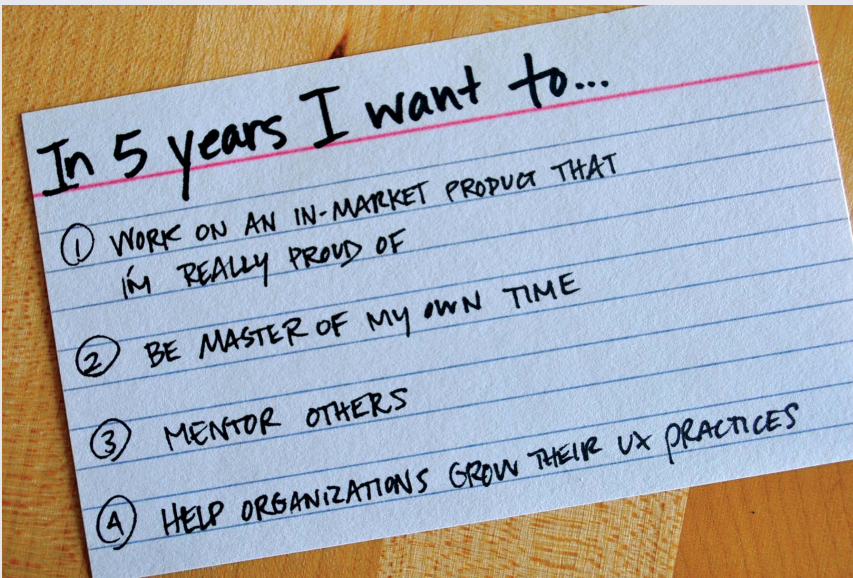 In 5 years I want to...
① WORK ON AN IN-MARKET PRODUCT THAT
I'M REALLY PROUD OF
② BE MASTER OF MY OWN TIME
③ MENTOR OTHERS
④ HELP ORGANIZATIONS GROW THEIR UX PRACTICES